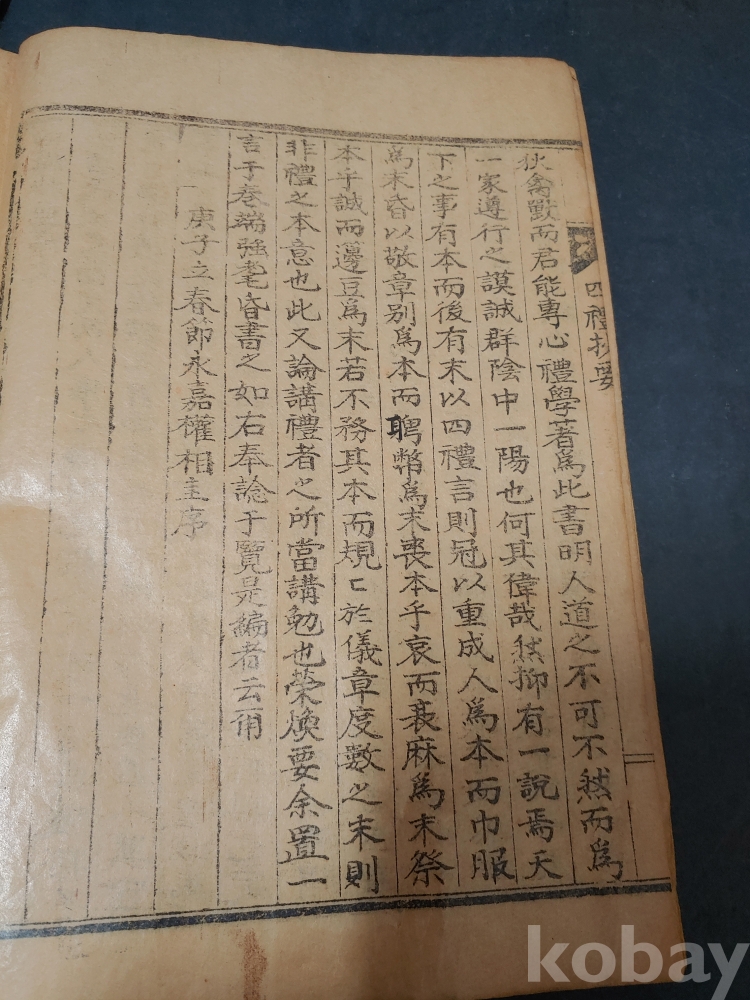 四禮抄要
狄禽獸而君能專心禮學著爲此書明人道之不可不然而爲
一家遵行之謨誠群陰中一陽也何其偉哉然抑有一說焉天
下之事有本而後有末以四禮言則冠以重成人爲本而巾服
爲末昏以敬章別爲本而聘幣爲末喪本乎哀而衰麻爲末祭
本乎誠而籩豆爲末若不務其本而規〻於儀章度數之末則
非禮之本意也此又論講禮者之所當講勉也榮煥要余置一
言于卷端強耄昏書之如右奉諗于覽是編者云爾
庚子立春節永嘉權相圭序
kobay